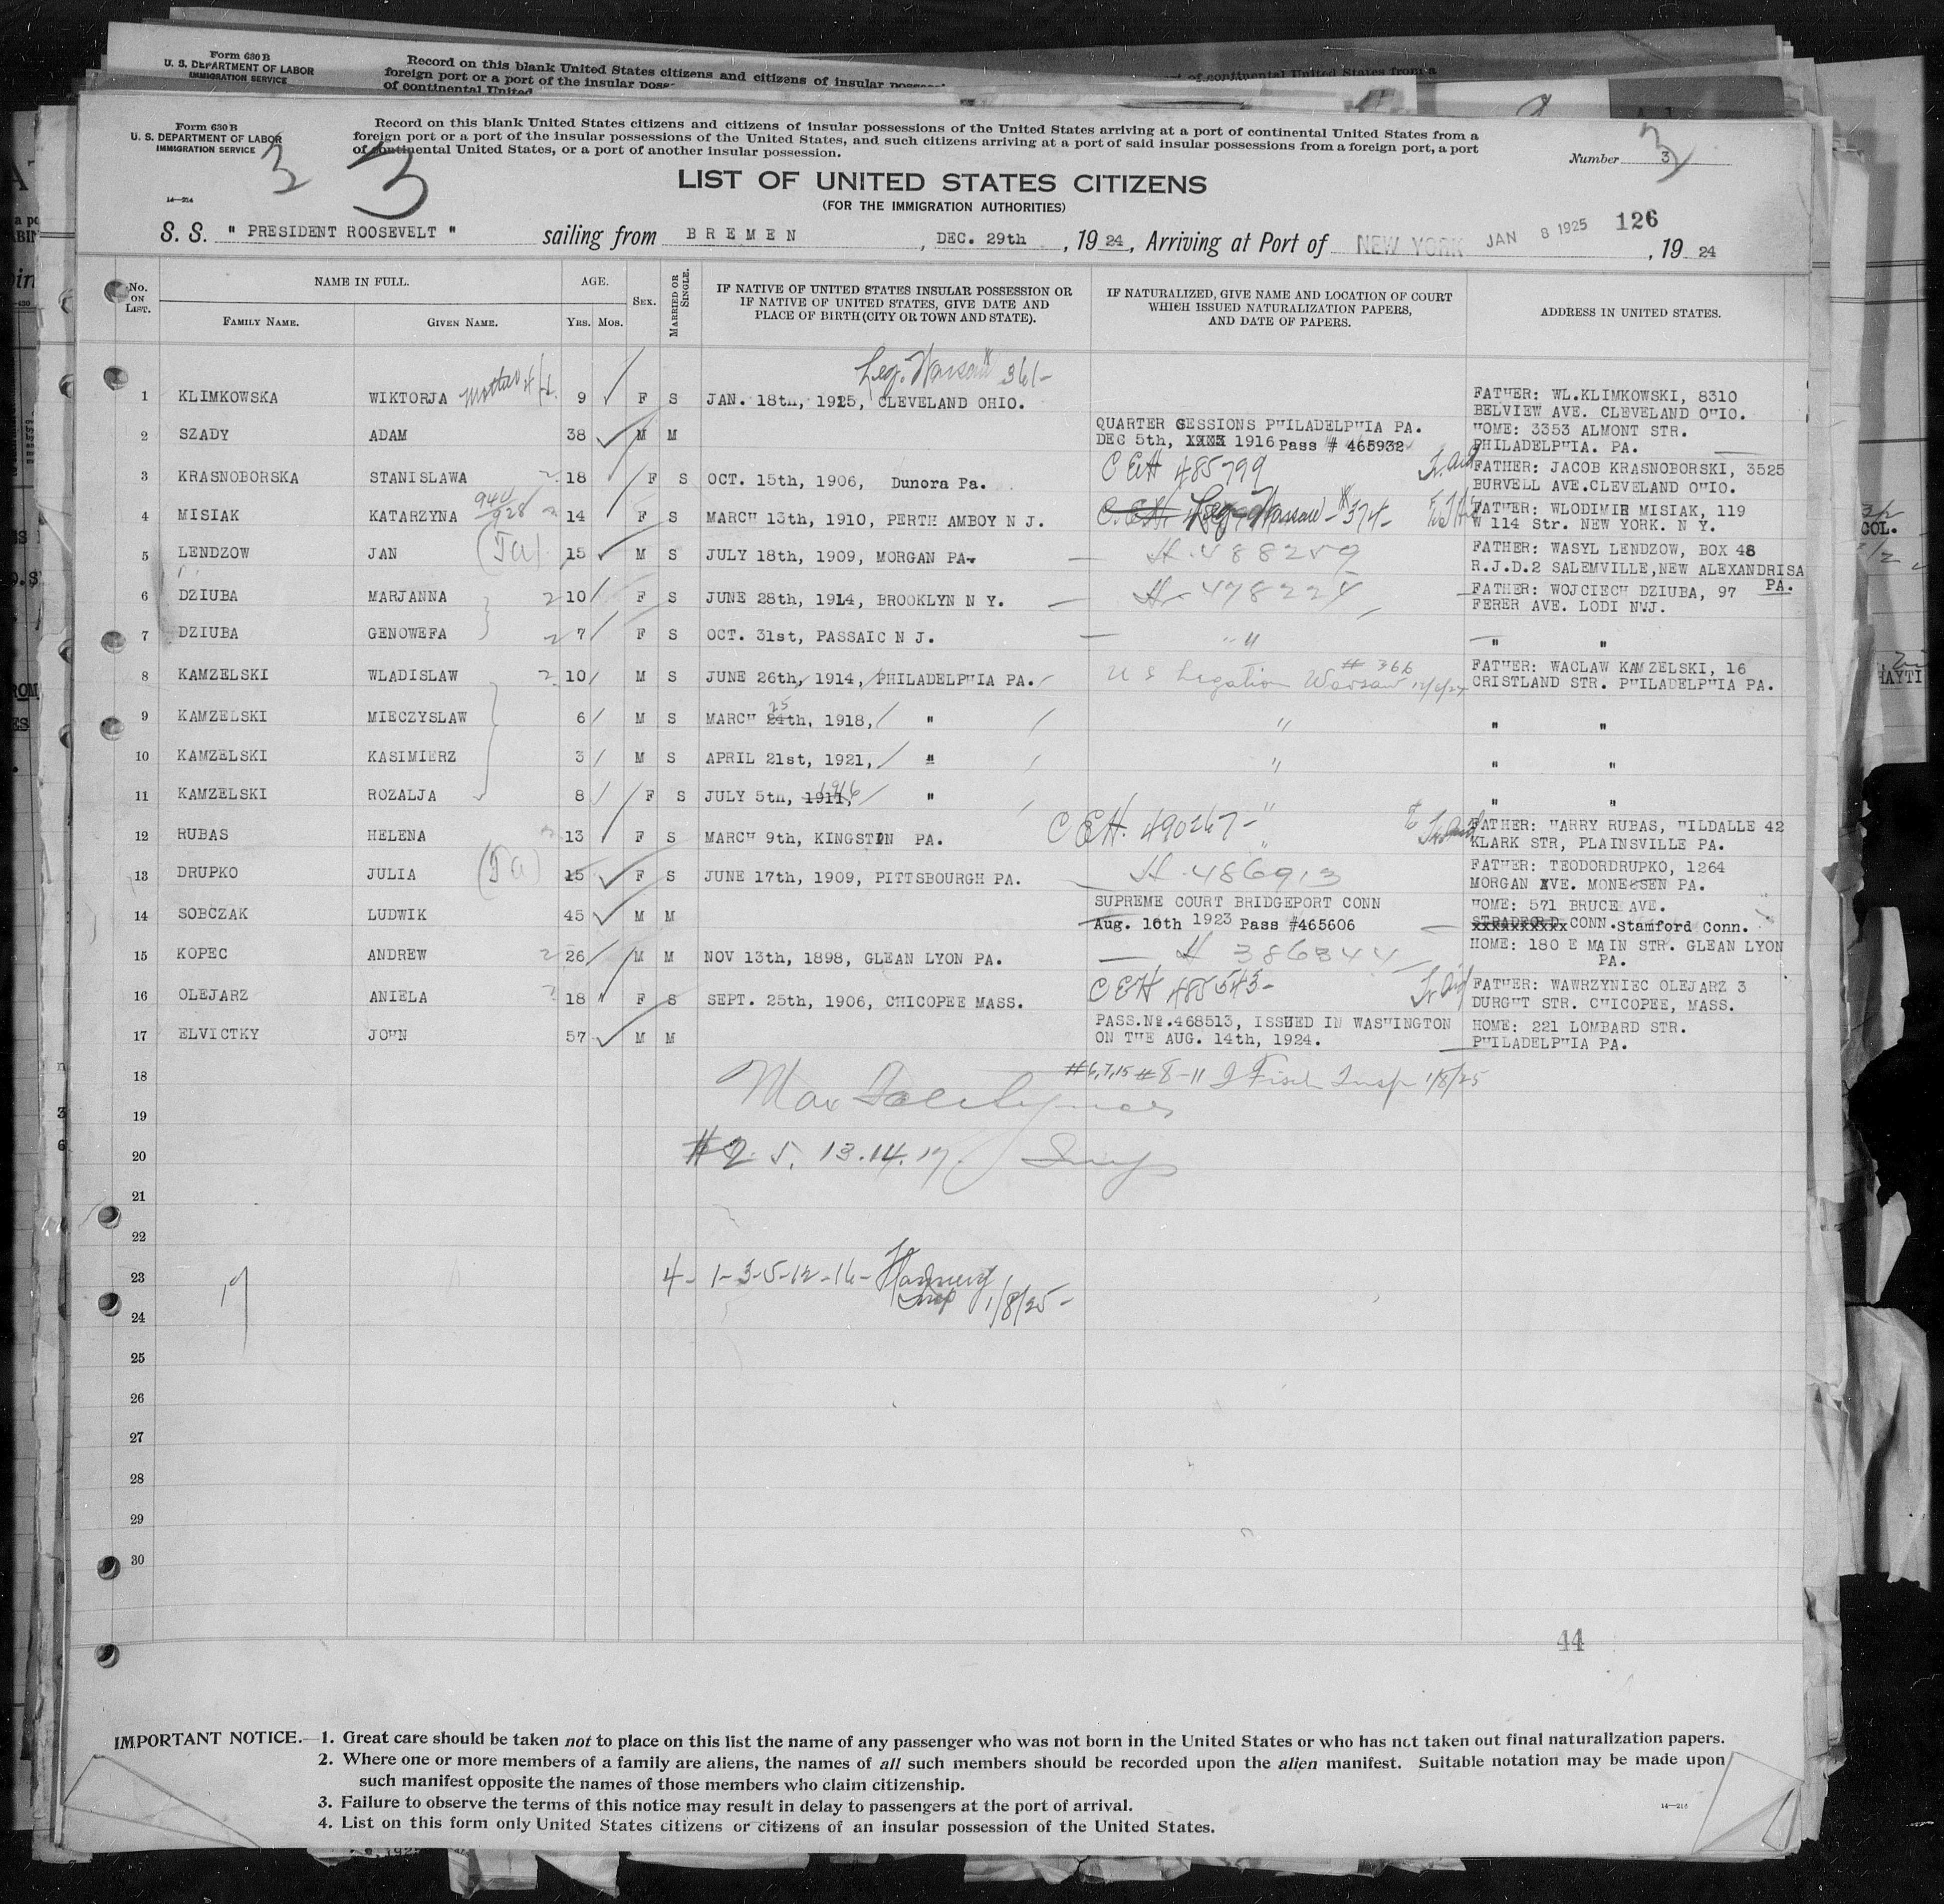 Form 630 B
U. S. DEPARTMENT OF LABOR
IMMIGRATION SERVICE
Record on this blank United States citizens and citizens of insular
foreign port or a port of the insular
of continental United
of continental United States from a
Form 630 B
U. S. DEPARTMENT OF LABOR
IMMIGRATION SERVICE
14—214
3 3
Record on this blank United States citizens and citizens of insular possessions of the United States arriving at a port of continental United States from a
foreign port or a port of the insular possessions of the United States, and such citizens arriving at a port of said insular possessions from a foreign port, a port
of continental United States, or a port of another insular possession.
Number 3
3
LIST OF UNITED STATES CITIZENS
(FOR THE IMMIGRATION AUTHORITIES)
126
S. S. " PRESIDENT ROOSEVELT " sailing from BREMEN, DEC. 29th, 1924, Arriving at Port of NEW YORK JAN 8 1925, 19 24
No. ON LIST. NAME IN FULL. AGE. SEX. MARRIED OR SINGLE. IF NATIVE OF UNITED STATES INSULAR POSSESSION OR IF NATIVE OF UNITED STATES, GIVE DATE AND PLACE OF BIRTH (CITY OR TOWN AND STATE). IF NATURALIZED, GIVE NAME AND LOCATION OF COURT WHICH ISSUED NATURALIZATION PAPERS, AND DATE OF PAPERS. ADDRESS IN UNITED STATES.
FAMILY NAME. GIVEN NAME. YRS. MOS.
Leg. Warsaw # 361-
1 KLIMKOWSKA WIKTORJA 9 F S JAN. 18th, 1915, CLEVELAND OHIO. FATHER: WL.KLIMKOWSKI, 8310
BELVIEW AVE. CLEVELAND OHIO.
2 SZADY ADAM 38 M M QUARTER SESSIONS PHILADELPHIA PA. HOME: 3353 ALMONT STR.
DEC 5th, 1916 Pass # 465932 PHILADELPHIA. PA.
3 KRASNOBORSKA STANISLAWA 18 F S OCT. 15th, 1906, Dunora Pa. C EH 485799 FATHER: JACOB KRASNOBORSKI, 3525
BURVELL AVE.CLEVELAND OHIO.
4 MISIAK KATARZYNA 940/928 14 F S MARCH 13th, 1910, PERTH AMBOY N J. Leg. Warsaw - #374- FATHER: WLODIMIR MISIAK, 119
W 114 Str. NEW YORK. N Y.
5 LENDZOW JAN (Ta) 15 M S JULY 18th, 1909, MORGAN PA. H. 488259 FATHER: WASYL LENDZOW, BOX 48
R.J.D.2 SALEMVILLE,NEW ALEXANDRISA
PA.
6 DZIUBA MARJANNA 10 F S JUNE 28th, 1914, BROOKLYN N Y. H- 478224 FATHER: WOJCIECH DZIUBA, 97
FERER AVE. LODI NWJ.
7 DZIUBA GENOWEFA 7 F S OCT. 31st, PASSAIC N J. " " "
8 KAMZELSKI WLADISLAW 10 M S JUNE 26th, 1914, PHILADELPHIA PA. U S Legation Warsaw # 366 12/6/24 FATHER: WACLAW KAMZELSKI, 16
CRISTLAND STR. PHILADELPHIA PA.
9 KAMZELSKI MIECZYSLAW 6 M S MARCH 24th, 25 1918, " " " "
10 KAMZELSKI KASIMIERZ 3 M S APRIL 21st, 1921, " " " "
11 KAMZELSKI ROZALJA 8 F S JULY 5th, 1911, 1916 " " " "
12 RUBAS HELENA 13 F S MARCH 9th, KINGSTON PA. C EH. 490267- FATHER: HARRY RUBAS, HILDALLE 42
KLARK STR, PLAINSVILLE PA.
13 DRUPKO JULIA (Ta) 15 F S JUNE 17th, 1909, PITTSBOURGH PA. H. 486913 FATHER: TEODORDRUPKO, 1264
MORGAN AVE. MONESSEN PA.
14 SOBCZAK LUDWIK 45 M M SUPREME COURT BRIDGEPORT CONN HOME: 571 BRUCE AVE.
Aug. 10th 1923 Pass #465606 STRADFORD CONN.Stamford Conn.
15 KOPEC ANDREW 26 M M NOV 13th, 1898, GLEAN LYON PA. H 386344 HOME: 180 E MAIN STR. GLEAN LYON
PA.
16 OLEJARZ ANIELA 18 F S SEPT. 25th, 1906, CHICOPEE MASS. C EH 485543- FATHER: WAWRZYNIEC OLEJARZ 3
DURGHT STR. CHICOPEE, MASS.
17 ELVICTKY JOHN 57 M M PASS.No.468513, ISSUED IN WASHINGTON HOME: 221 LOMBARD STR.
ON THE AUG. 14th, 1924. PHILADELPHIA PA.
18 #6,7,15 #8-11 Insp 1/8/25
19 Max
20 #2. 5. 13.14.17. Insp
21
22
23 4- 1-3-5-12-16-
17
24 Insp 1/8/25-
25
26
27
28
29
30
44
IMPORTANT NOTICE.—1. Great care should be taken not to place on this list the name of any passenger who was not born in the United States or who has not taken out final naturalization papers.
2. Where one or more members of a family are aliens, the names of all such members should be recorded upon the alien manifest. Suitable notation may be made upon
such manifest opposite the names of those members who claim citizenship.
3. Failure to observe the terms of this notice may result in delay to passengers at the port of arrival.
4. List on this form only United States citizens or citizens of an insular possession of the United States.
14—216